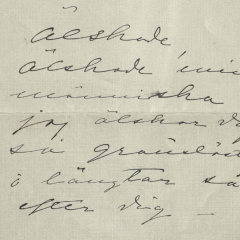 Älskade
älskade min
människa
jag älskar di
så gränslöst
o längtar så
efter dig –